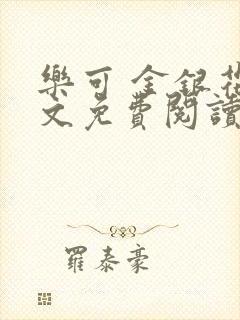 樂可 金銀花
文免費閱讀
羅泰豪